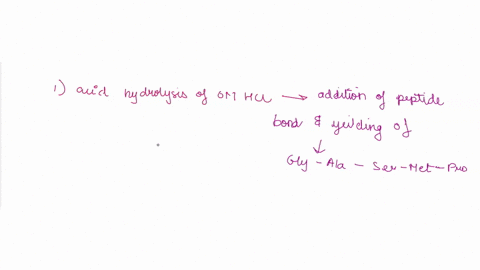 1) acid hydrolysis of 6M HCl → addition of peptide
bond & yeilding of
↓
Gly - Ala - Ser - Met - Pro